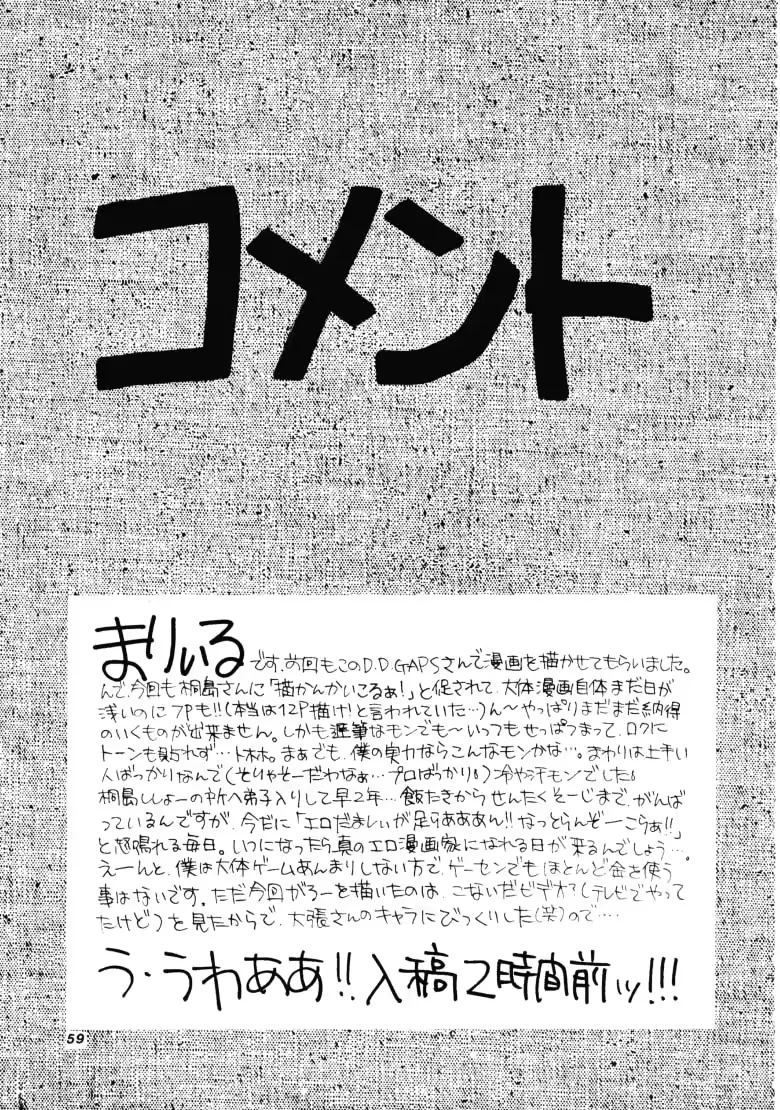 コメント
まりぃる です。前回もこのD.D.GAPSさんで漫画を描かせてもらいました。
んで、今回も桐島さんに「描かんかいこるぁ!」と促されて、大体漫画自体まだ日が
浅いのに7Pも!!(本当は12P描け!と言われていた…)ん〜やっぱりまだまだ納得
のいくものが出来ません。しかも遅筆なモンでも〜いっつもせっぱつまって、ロクに
トーンも貼れず…トホホ。まぁでも、僕の実力ならこんなモンかな…。まわりは上手い
人ばっかりなんで(そりゃそーだわなぁ…プロばっかり!)冷や汗モンでした!
桐島ししょーの所へ弟子入りして早2年…飯たきからせんたくそーじまで、がんば
っているんですが、今だに「エロだましぃが足りあああん!!なっとらんぞーこらぁ!!」
と怒鳴れる毎日。いつになったら真のエロ漫画家になれる日が来るんでしょう…。
えーんと、僕は大体ゲームあんまりしない方で、ゲーセンでもほとんど金を使う
事はないです。ただ今回がろーを描いたのは、こないだビデオ?(テレビでやって
たけど)を見たからで、大張さんのキャラにびっくりした(笑)ので‥‥
う・うわああ!!入稿2時間前ッ!!!
59